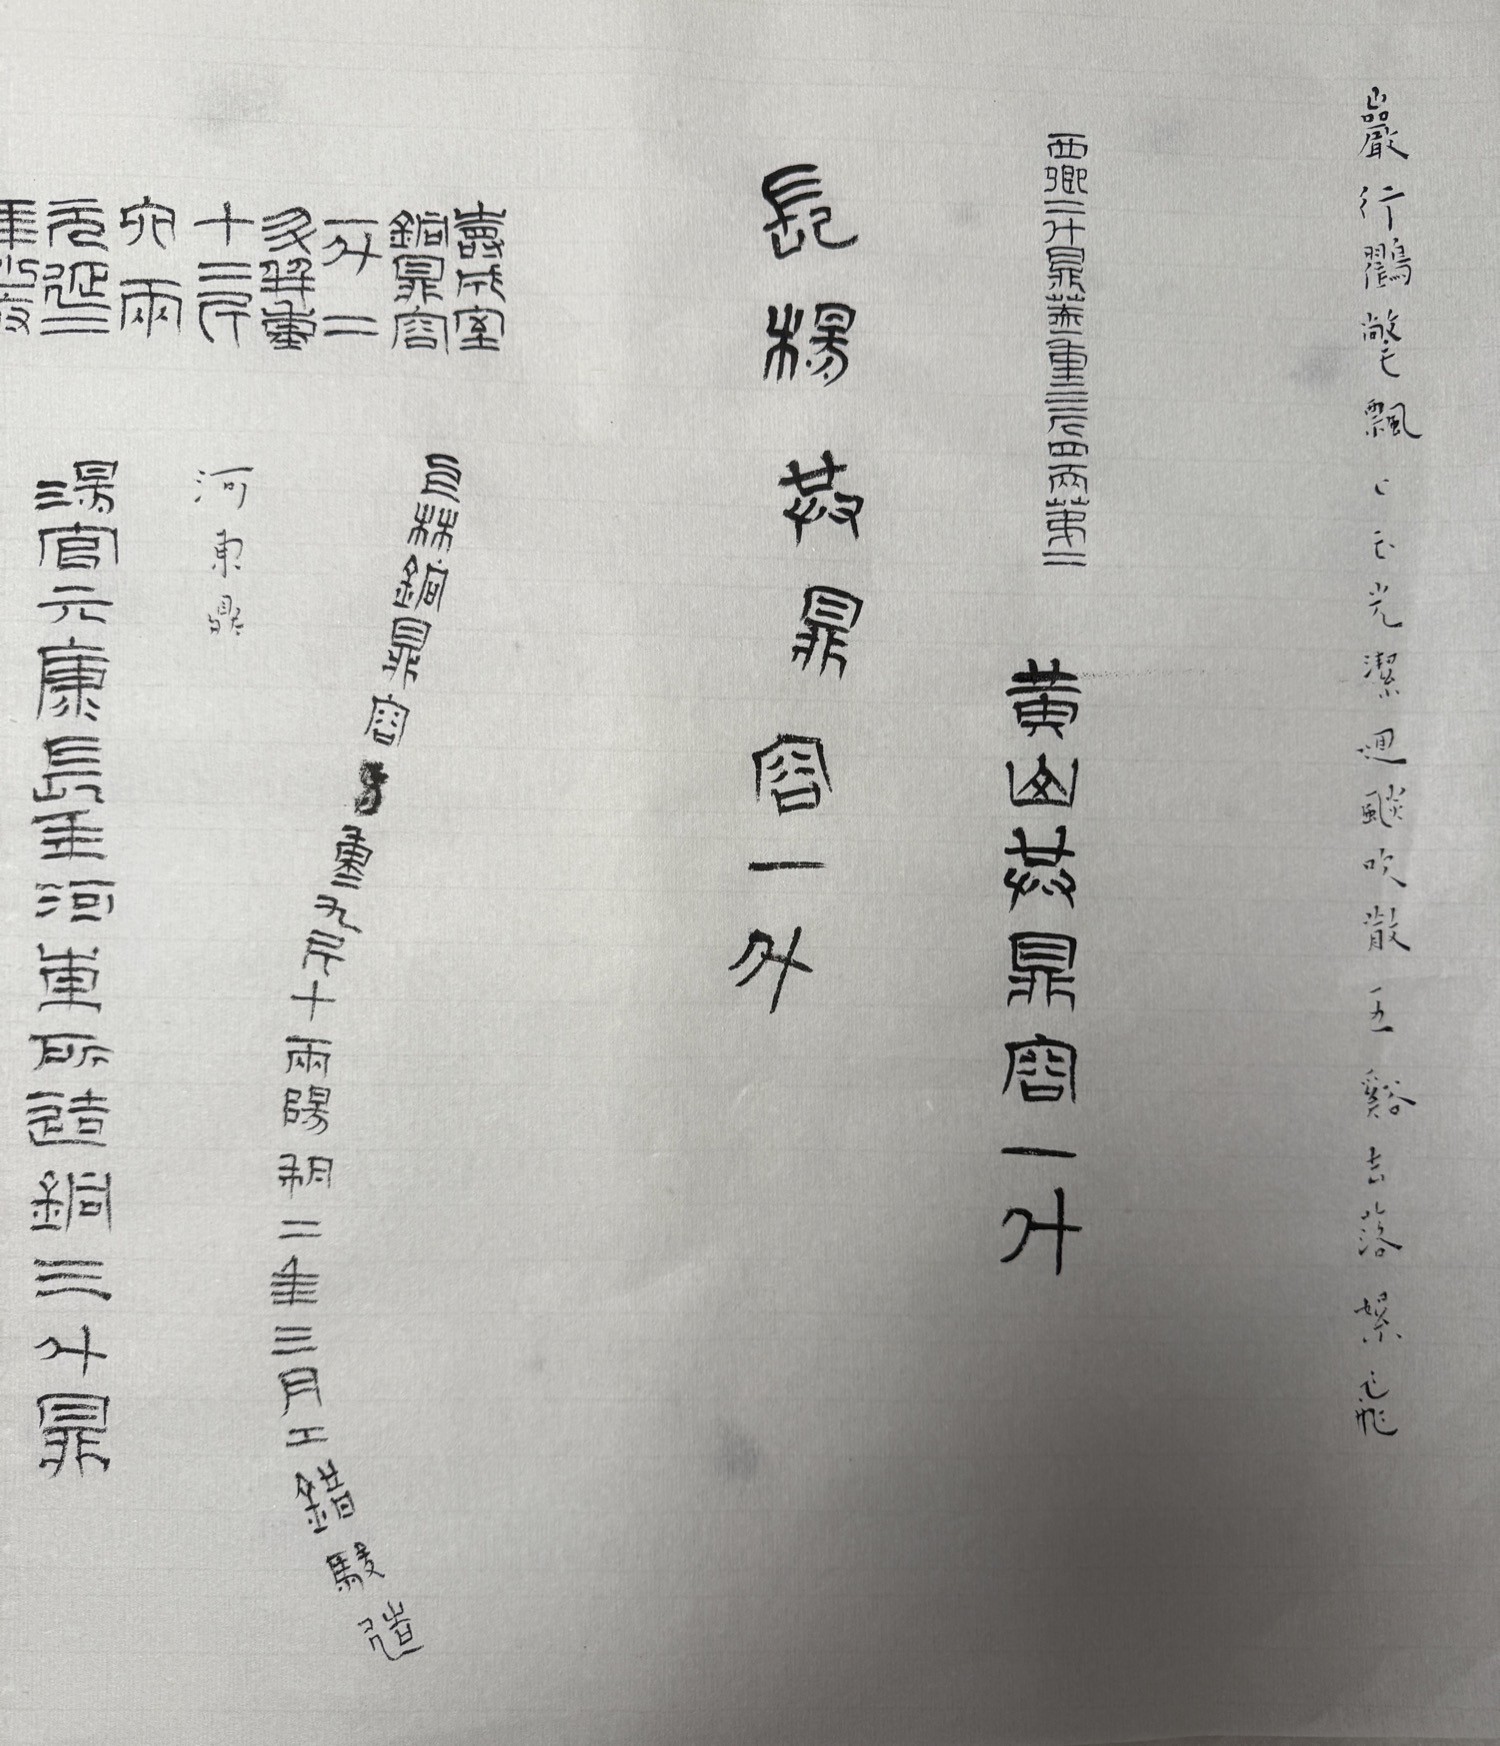 巖行鸛氅飄〻玉光潔迴飈吹散五谿去落絮飛
西鄉二斗鼎蓋重三斤四兩第二
黃山共鼎容一斗
長楊共鼎容一斗
壽成室
銅鼎容
一斗二
升并重
十三斤
六兩
元延二
年少府
上林銅鼎容重九斤十兩陽朔二年三月工錯駿造
河東鼎
湯官元康長年河東所造銅三斗鼎